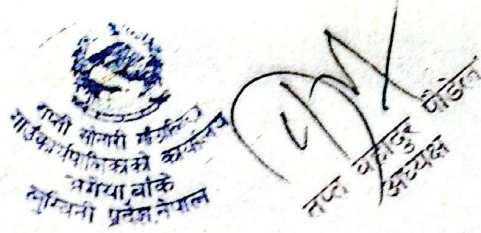 राप्ती सोनारी गाउँपालिका
गाउँकार्यपालिकाको कार्यालय
अगैया बाँके
लुम्बिनी प्रदेश, नेपाल
तप्त बहादुर पौडेल
अध्यक्ष